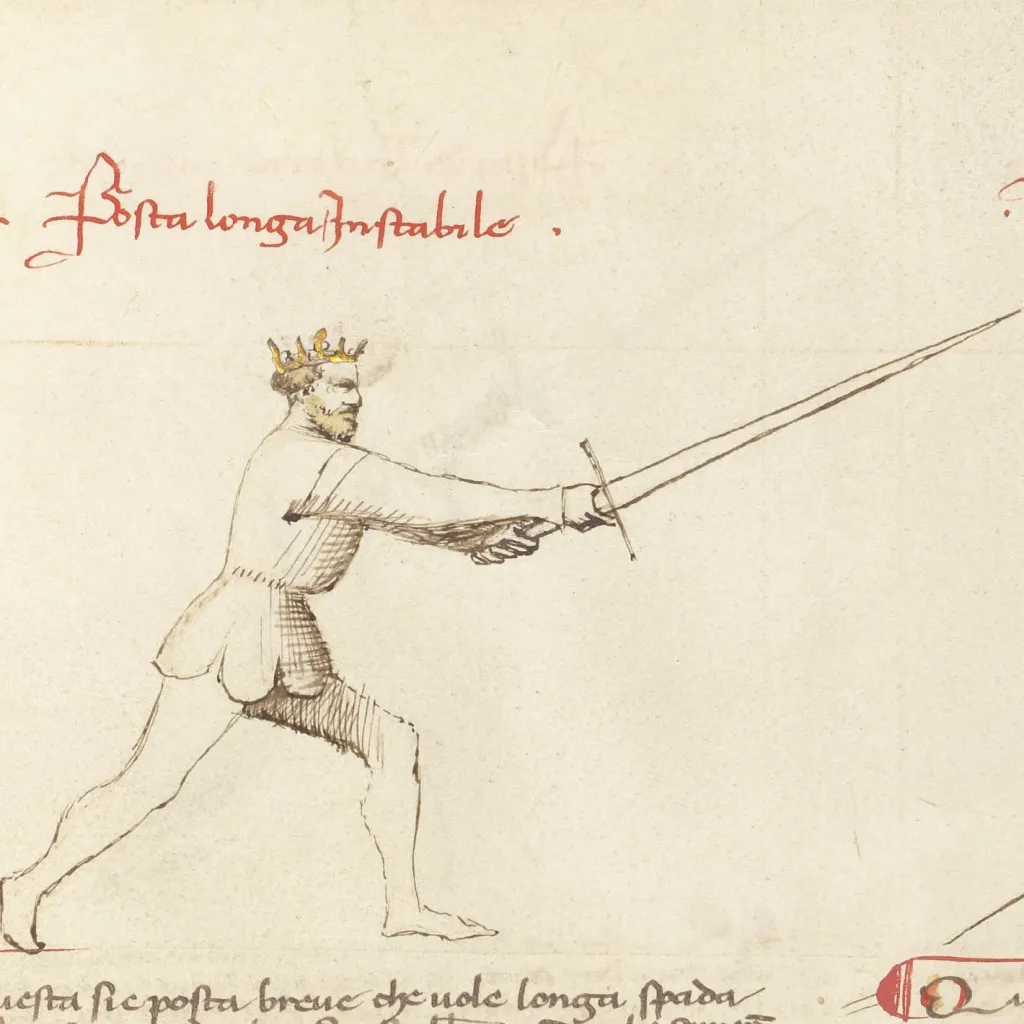 Posta longa Instabile .
uesta sie posta breue che uole longa spada